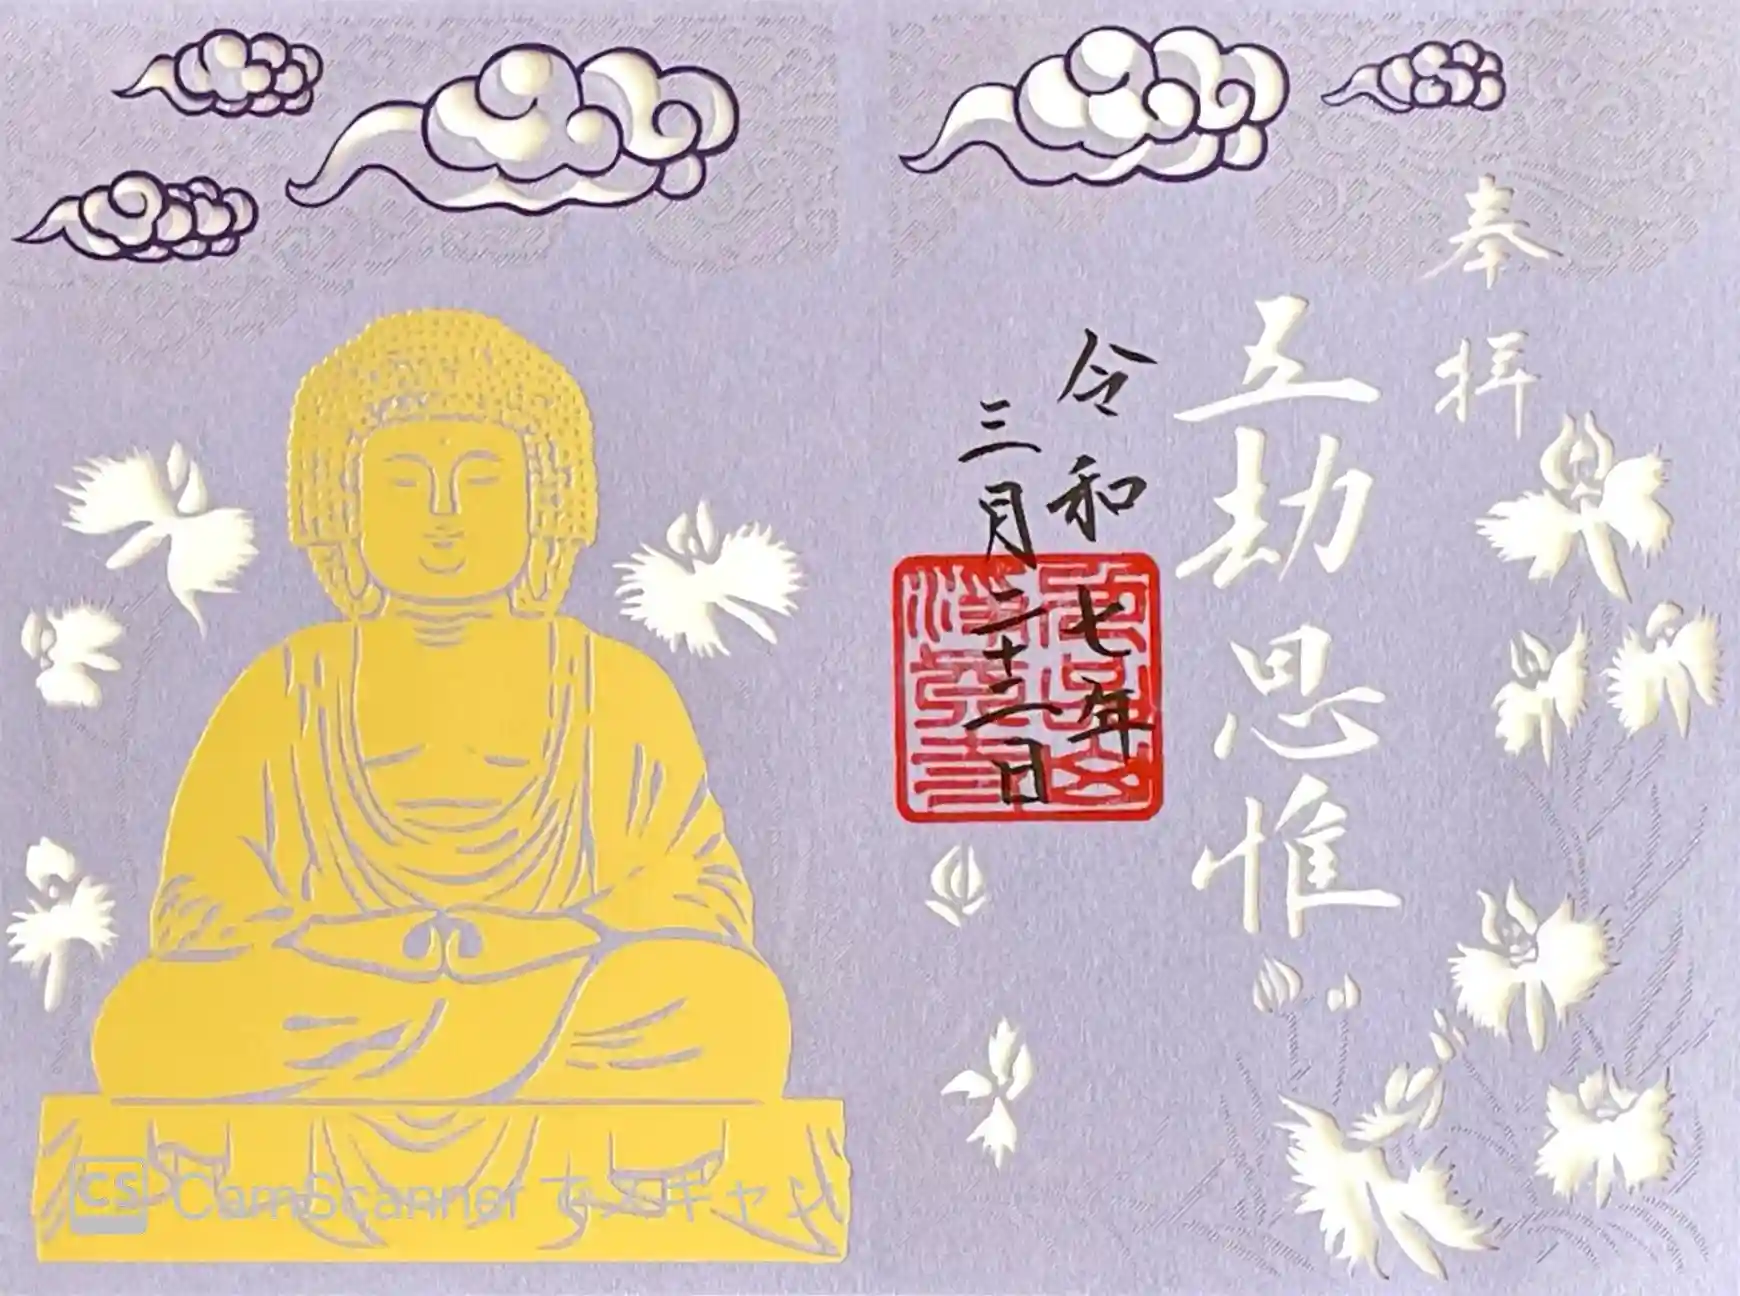 奉拝
五劫思惟
令和七年
三月二十二日
CS CamScanner でスキャン